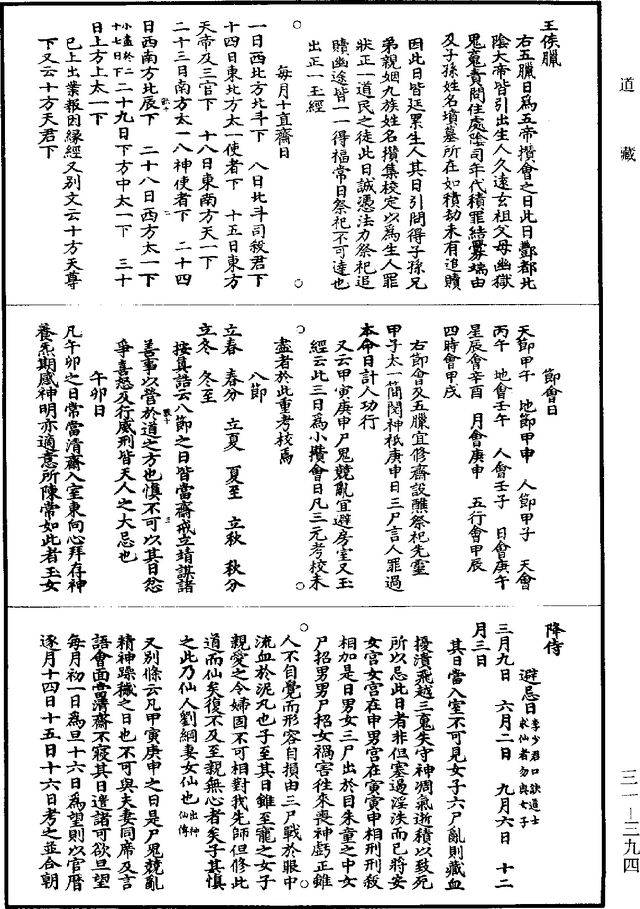 道藏
王侯臘
右五臘日爲五帝攢會之日此日酆都北
陰大帝皆引出生人久遠玄祖父母幽獄
鬼魂責問住處陰司年代積罪結釁端由
及子孫姓名墳墓所在如積劫未有追贖
因此日皆延累生人其日引問得子孫兄
弟親姻九族姓名攢集校定以爲生人罪
狀正一道民之徒此日誠憑法力祭祀追
贖幽途皆一一得福常日祭祀不可達也
出正一玉經
每月十直齋日
一日西北方北斗下 八日北斗司殺君下
十四日東北方太一使者下 十五日東方
天帝及三官下 十八日東南方天一下
二十三日南方太一八神使者下 二十四
日西南方北辰下 二十八日西方太一下
小盡於二十七日下 二十九日下方中太一下 三十
日上方上太一下
已上出業報因緣經又別文云十方天尊
下又云十方天君下
節會日
天節甲子 地節甲申 人節甲子 天會
丙午 地會壬午 人會壬子 日會庚午
星辰會辛酉 月會庚申 五行會甲辰
四時會甲戌
右節會及五臘宜修齋設醮祭祀先靈
甲子太一簡閱神祇庚申日三尸言人罪過
本命日計人功行
又云甲寅庚申尸鬼競亂宜避房室又玉
經云此三日爲小攢會日凡三元考校未
盡者於此重考校焉
八節
立春 春分 立夏 夏至 立秋 秋分
立冬 冬至
按真誥云八節之日皆當齋戒立靖謀諸
善事以營於道之方也慎不可以其日忿
爭喜怒及行威刑皆天人之大忌也
午卯日
凡午卯之日常當清齋入室東向心拜存神
養炁期感神明亦適意所陳常如此者玉女
降侍
避忌日 李少君口訣道士求仙者勿與女子
三月九日 六月二日 九月六日 十二
月三日
其日當入室不可見女子六尸亂則藏血
擾潰飛越三魂失守神凋氣逝積以致死
所以忌此日者非但塞遏淫泆而已將安
女宮女宮在申男宮在寅寅申相刑刑殺
相加是日男女三尸出於目朱童之中女
尸招男男尸招女禍害往來喪神虧正雖
人不自覺而形容自損由三尸戰於眼中
流血於泥丸也子至其日雖至寵之女子
親愛之令婦固不可相對我先師但修此
道而仙矣復不及至親無心者矣子其慎
之此乃仙人劉綱妻女仙也 出神仙傳
又別條云凡甲寅庚申之日是尸鬼競亂
精神躁穢之日也不可與夫妻同席及言
語會面當清齋不寢其日遣諸可欲旦望
每月初一日爲旦十六日爲望則以官曆
逐月十四日十五日十六日考之並合朝
三一—三九四